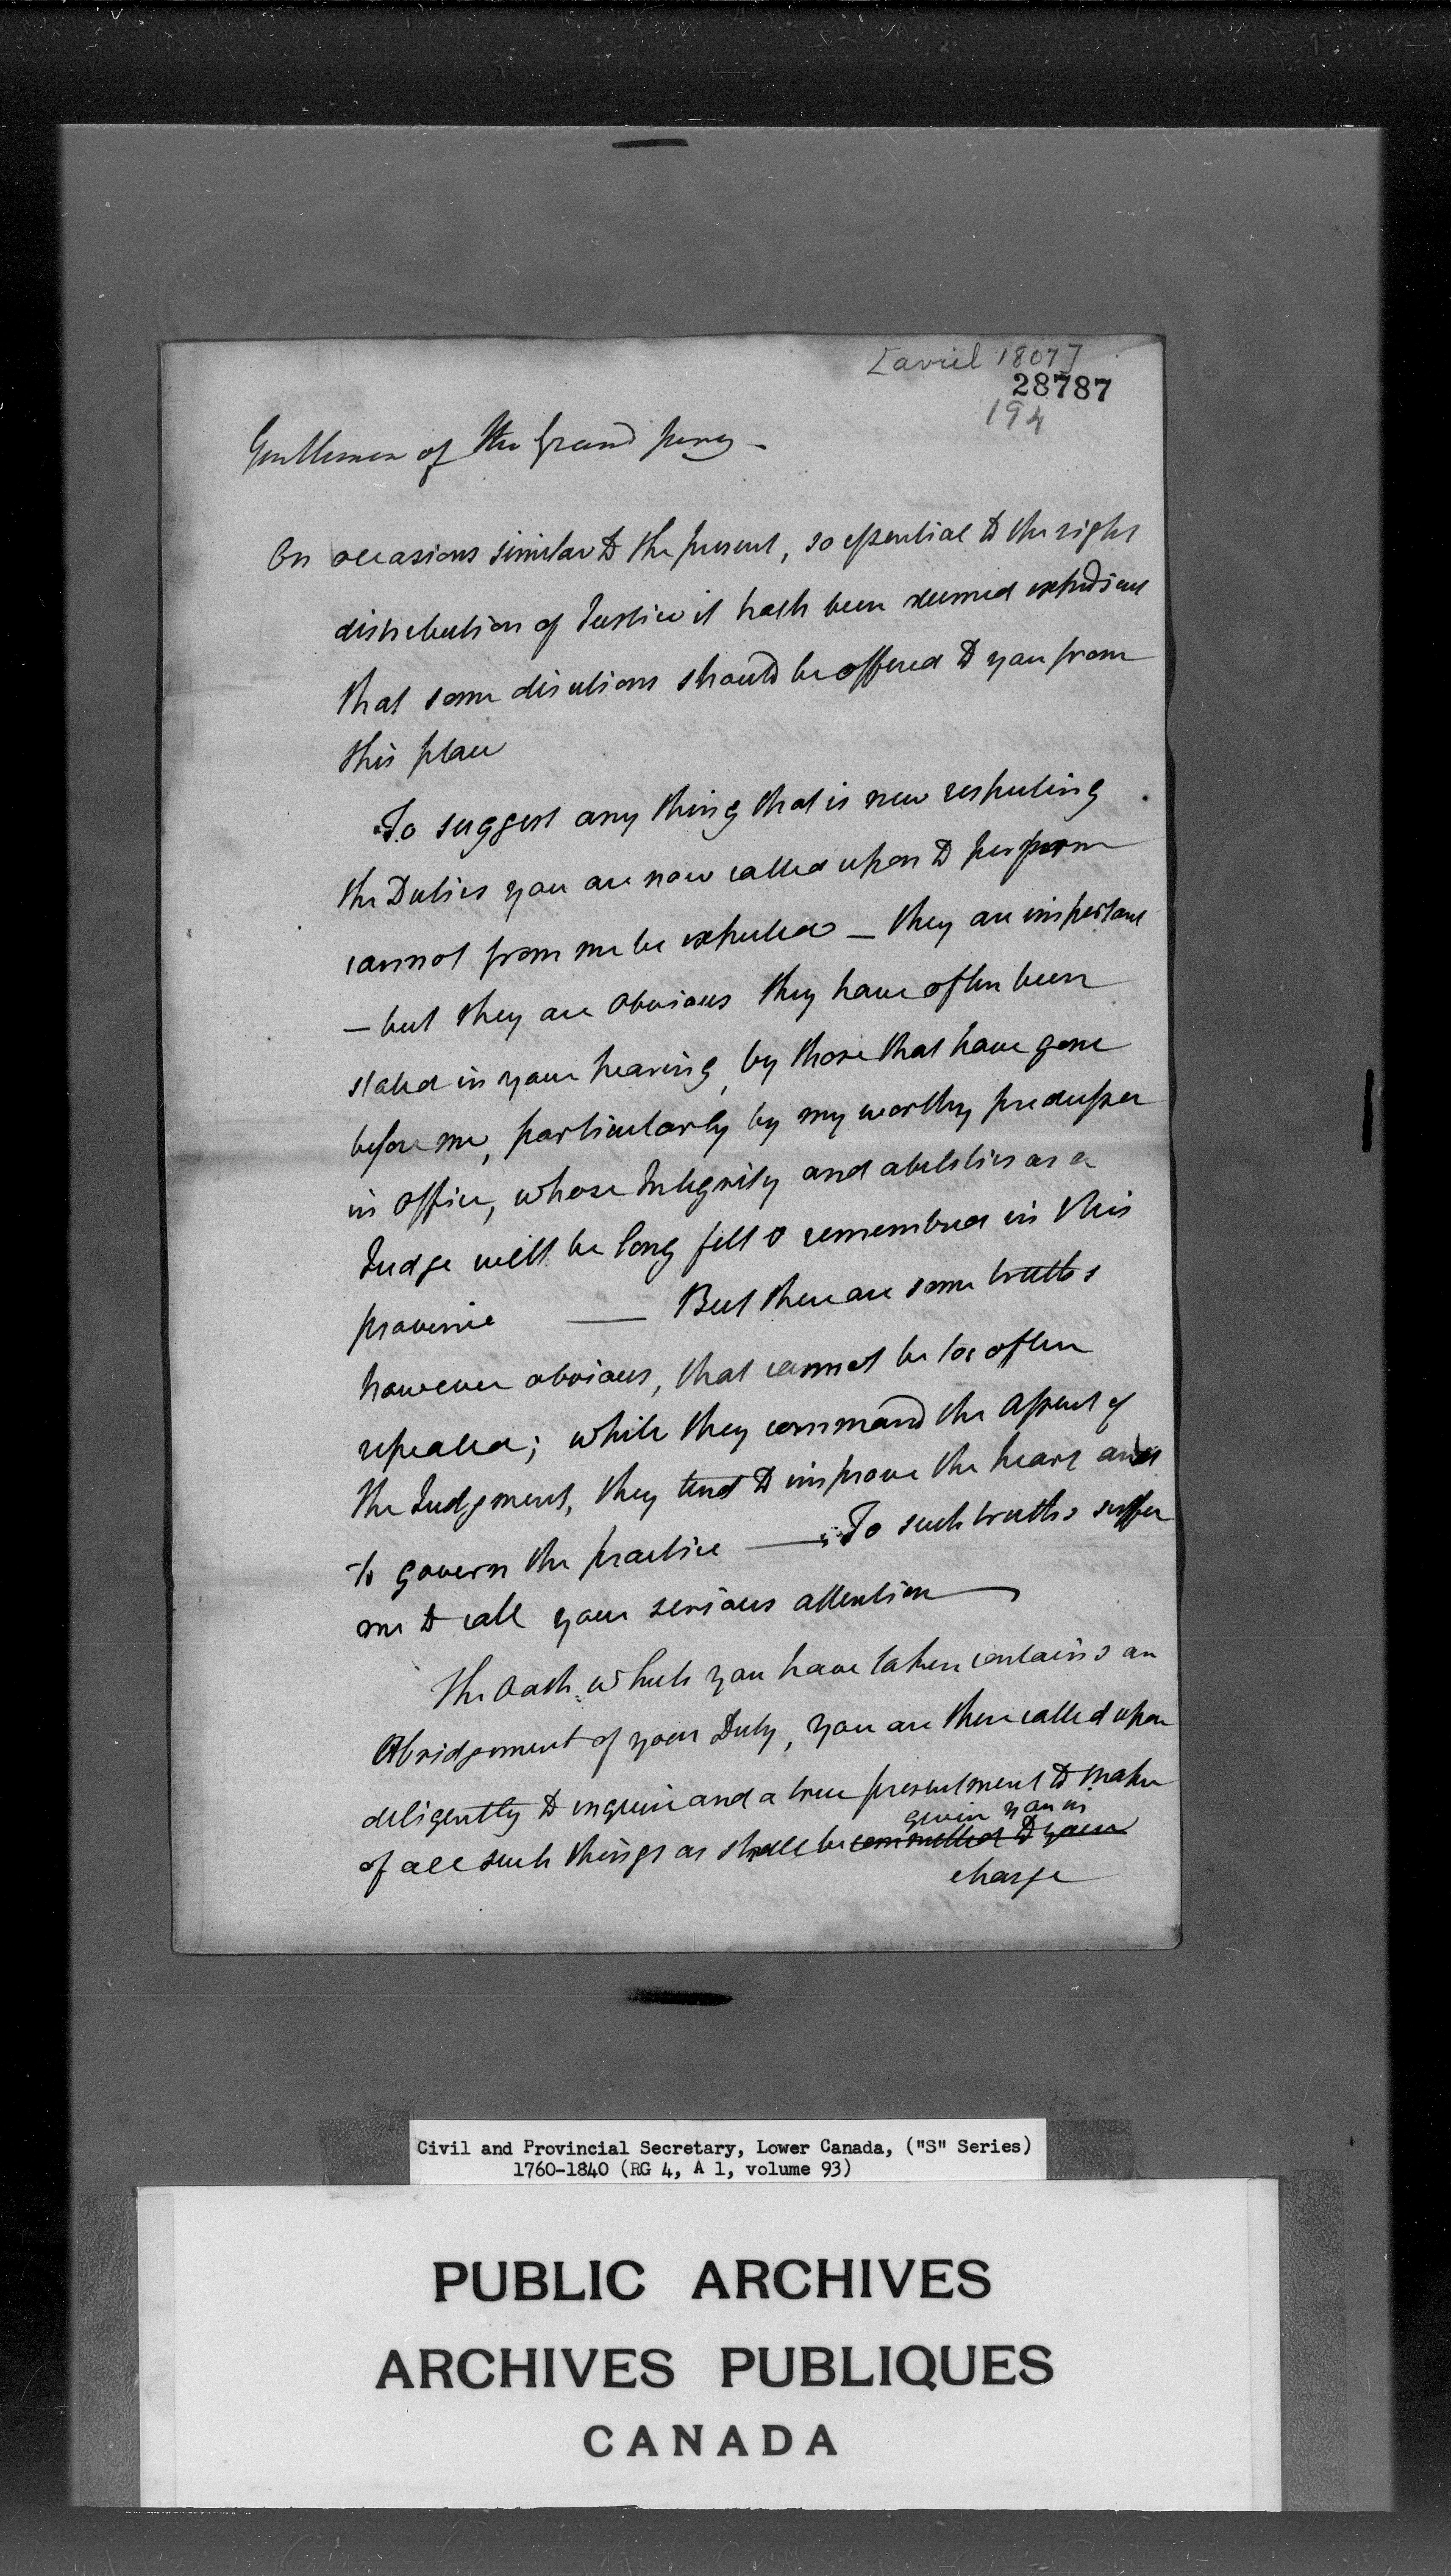 [avril 1807]
28787
194
Gentlemen of the Grand jury -
On occasions similar to the present, so essential to the right
distribution of Justice it hath been deemed expedient
that some directions should be offered to you from
this place
To suggest any thing that is new respecting
the Duties you are now called upon to perform
cannot from me be expected — they are important
— but they are obvious they have often been
stated in your hearing, by those that have gone
before me, particularly by my worthy predecessor
in office, whose Integrity and abilities as a
Judge will be long felt & remembred in this
province — But there are some truths
however obvious, that cannot be too often
repeated; while they command the assent of
the Judgment, they tend to improve the heart and
to govern the practice — To such truths suffer
me to call your serious attention —
The Oath which you have taken contains an
Abridgement of your Duty, you are there called upon
diligently to enquire and a true presentment to make
given you in
of all such things as shall be committed to your
charge
Civil and Provincial Secretary, Lower Canada, ("S" Series)
1760-1840 (RG 4, A 1, volume 93)
PUBLIC ARCHIVES
ARCHIVES PUBLIQUES
CANADA